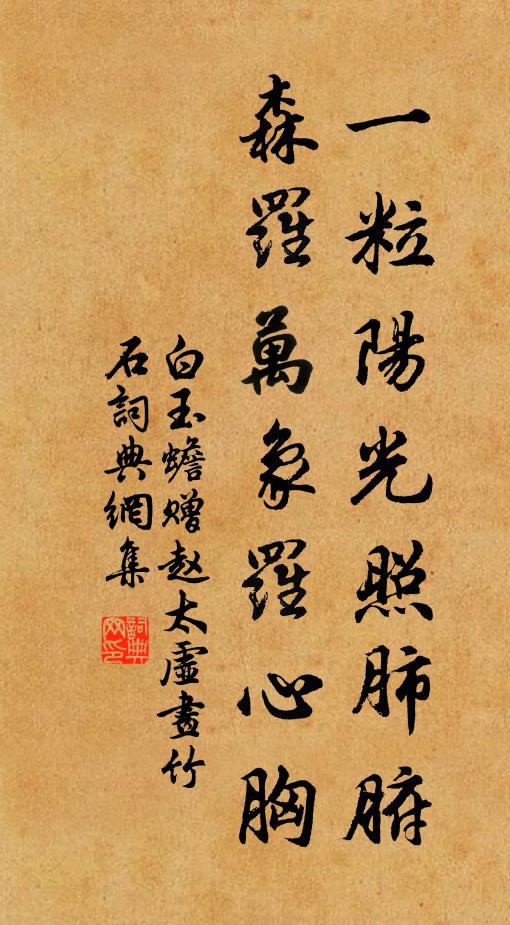 一粒陽光照肺腑
森羅萬象羅心胸
白玉蟾赠赵太虛畫竹
石詞典網集
詞典
网印